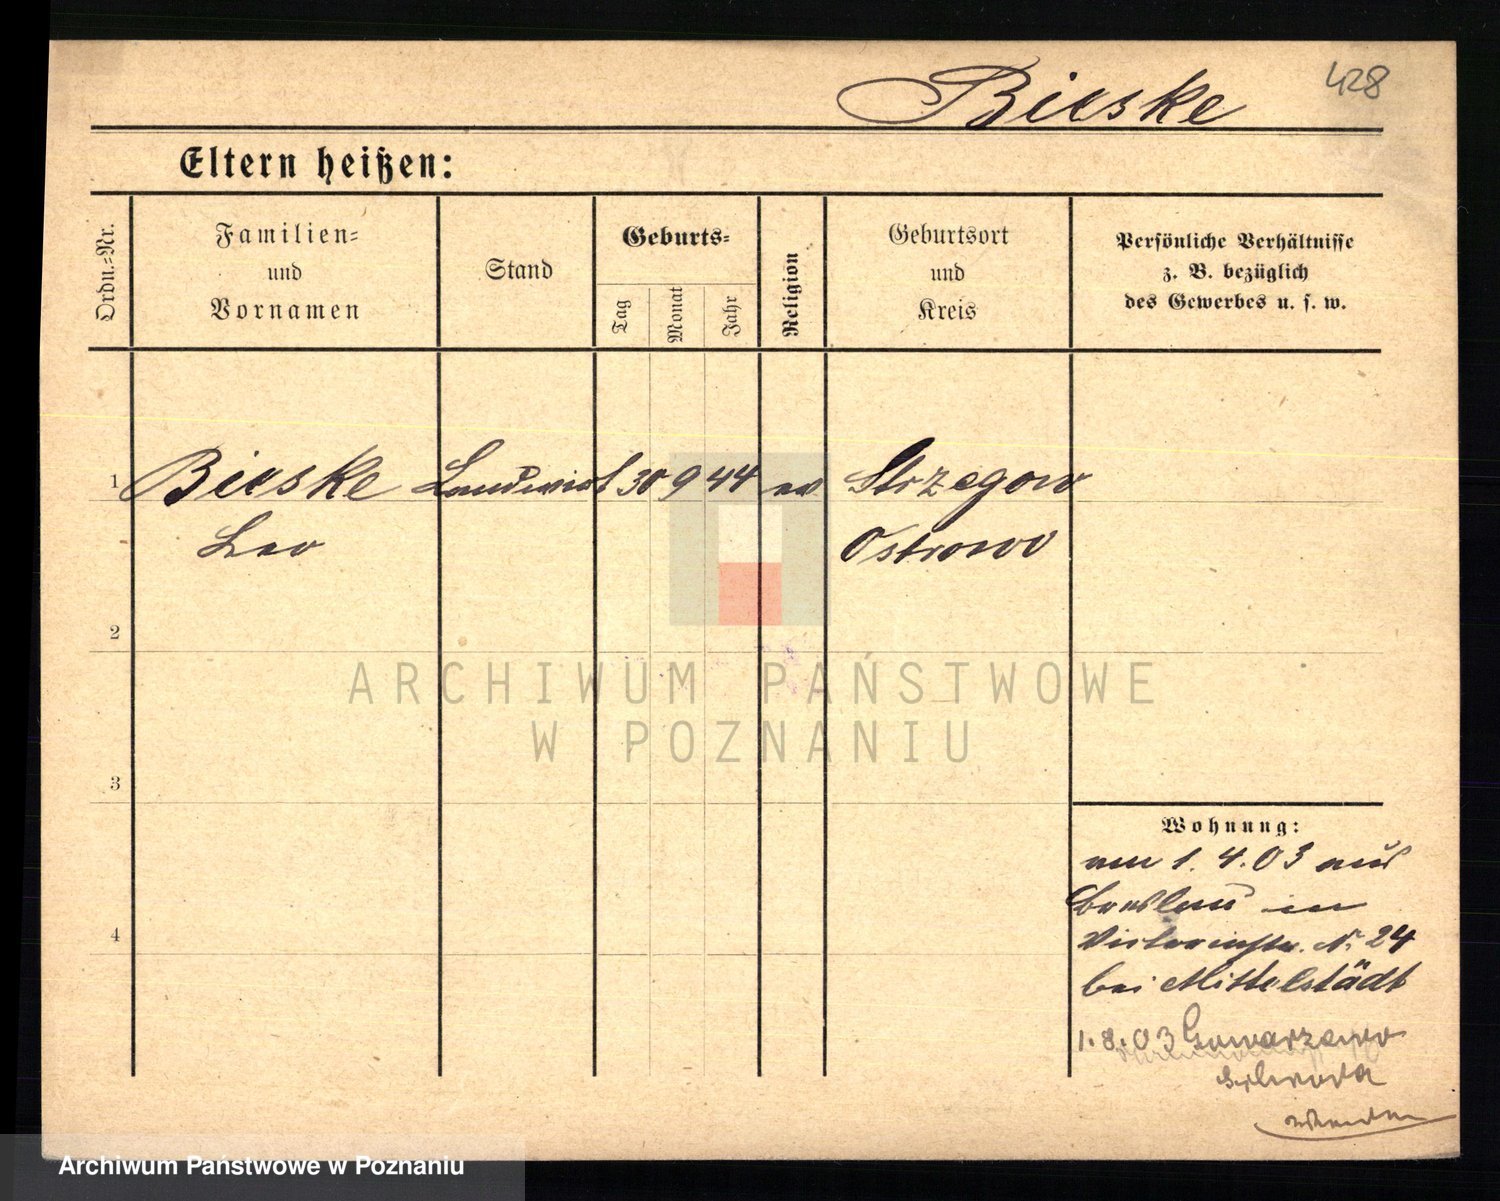 428
Bieske
Eltern heißen:
Ordn.-Nr.
Familien-
und
Vornamen
Stand
Geburts-
Tag
Monat
Jahr
Religion
Geburtsort
und
Kreis
Persönliche Verhältnisse
z. B. bezüglich
des Gewerbes u. s. w.
1 Bieske Landwirt 30 9 44 ev Strzegow
Leo Ostrowo
2
3
4
ARCHIWUM PAŃSTWOWE
W POZNANIU
Wohnung:
am 1. 4. 03 aus
Breslau in
Victoriastr. N. 24
bei Mittelstädt
1. 8. 03 Gowarzewo
Schroda
Archiwum Państwowe w Poznaniu